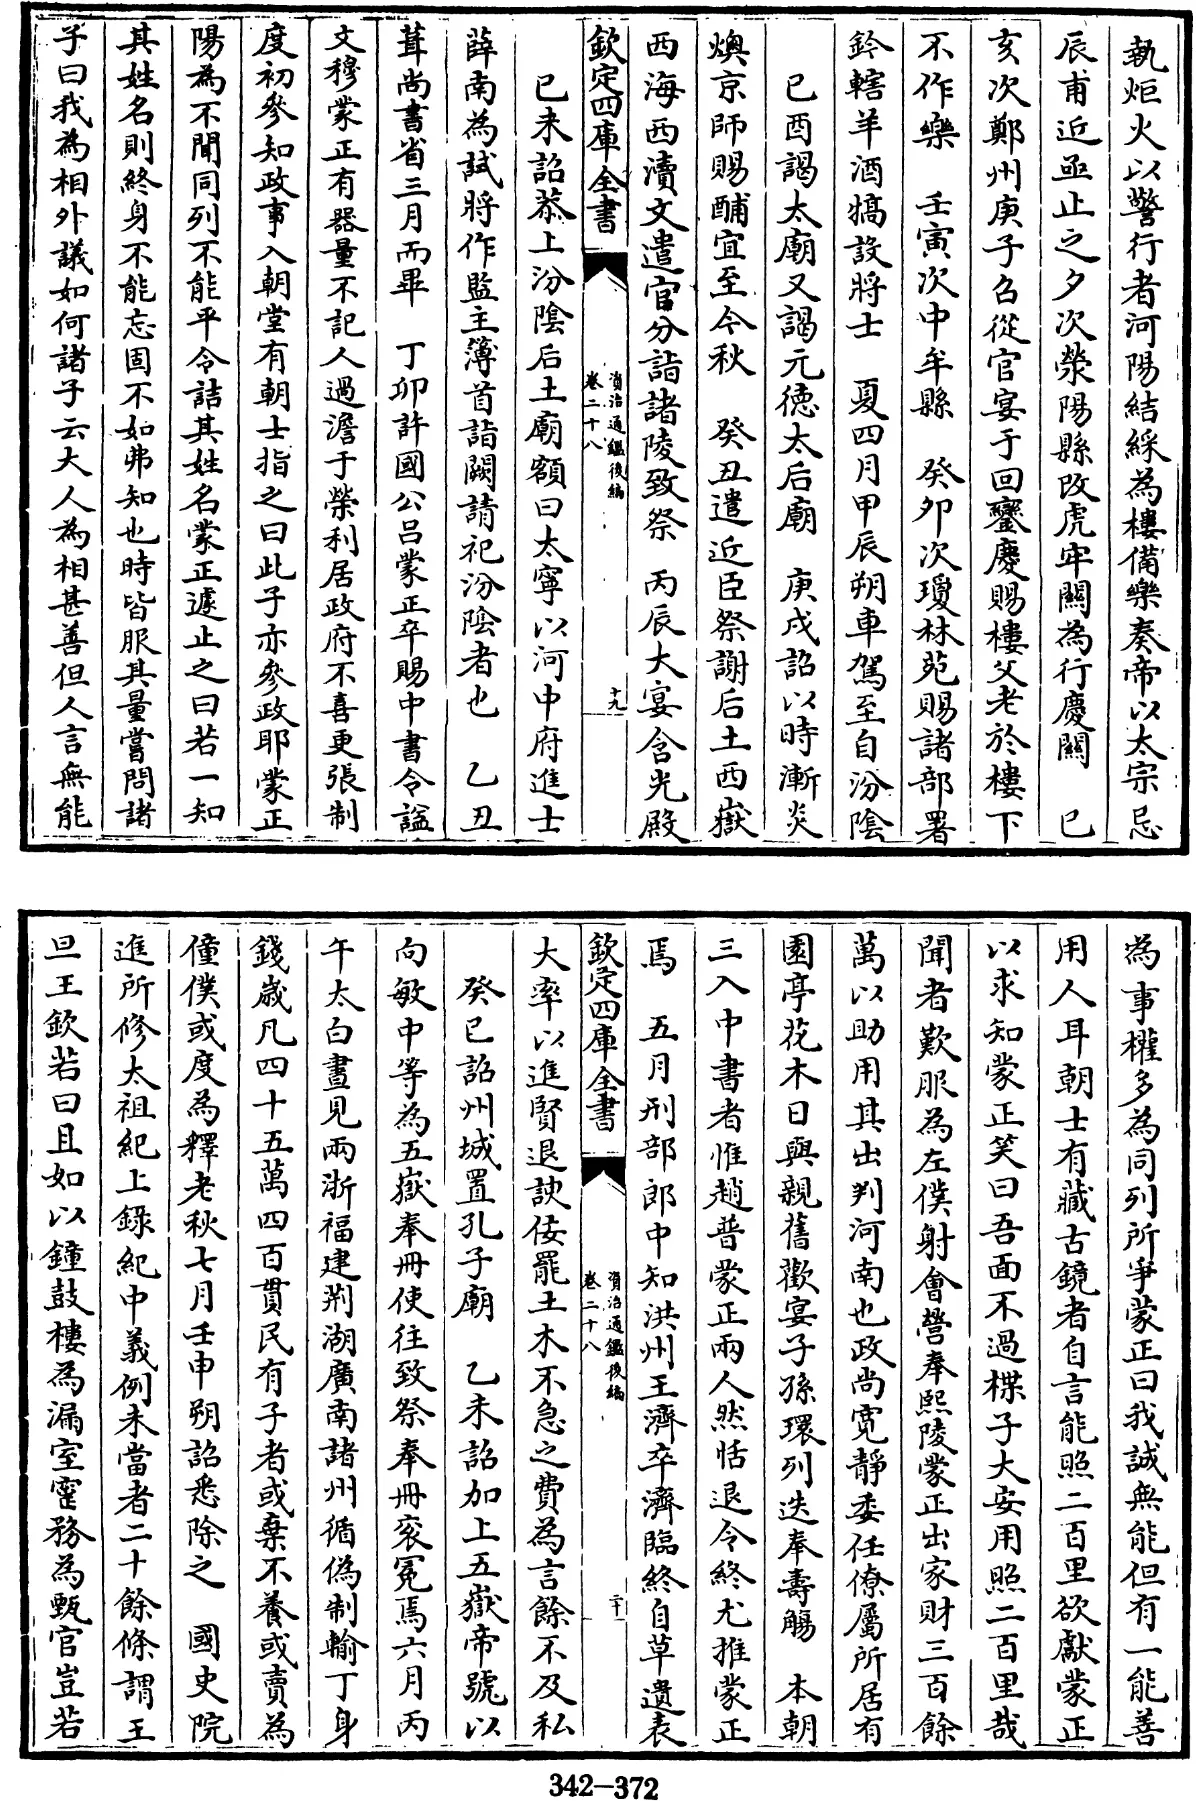 執炬火以警行者河陽結綵為樓備樂奏帝以太宗忌
辰甫近亟止之夕次滎陽縣改虎牢闗為行慶闗　已
亥次鄭州庚子召從官宴于回鑾慶賜樓父老於樓下
不作樂　壬寅次中牟縣　癸卯次瓊林苑賜諸部署
鈐轄羊酒犒設將士　夏四月甲辰朔車駕至自汾陰
已酉謁太廟又謁元徳太后廟　庚戌詔以時漸炎
燠京師賜酺宜至今秋　癸丑遣近臣祭謝后土西嶽
西海西瀆文遣官分詣諸陵致祭　丙辰大宴含光殿
欽定四庫全書
資治通鑑後編
卷二十八
十九
已未詔㳟上汾陰后土廟額曰太寧以河中府進士
薛南為試將作監主簿首詣闕請祀汾陰者也　乙丑
葺尚書省三月而畢　丁卯許國公吕蒙正卒賜中書令諡
文穆蒙正有器量不記人過澹于榮利居政府不喜更張制
度初參知政事入朝堂有朝士指之曰此子亦參政耶蒙正
陽為不聞同列不能平令詰其姓名蒙正遽止之曰若一知
其姓名則終身不能忘固不如弗知也時皆服其量嘗問諸
子曰我為相外議如何諸子云大人為相甚善但人言無能
為事權多為同列所爭蒙正曰我誠無能但有一能善
用人耳朝士有藏古鏡者自言能照二百里欲獻蒙正
以求知蒙正笑曰吾面不過楪子大安用照二百里哉
聞者歎服為左僕射會營奉熙陵蒙正出家財三百餘
萬以助用其出判河南也政尚寛靜委任僚屬所居有
園亭花木日與親舊歡宴子孫環列迭奉壽觴　本朝
三入中書者惟趙普蒙正兩人然恬退令終尤推蒙正
焉　五月刑部郎中知洪州王濟卒濟臨終自草遺表
欽定四庫全書
資治通鑑後編
卷二十八
二十
大率以進賢退諛佞罷土木不急之費為言餘不及私
癸已詔州城置孔子廟　乙未詔加上五嶽帝號以
向敏中等為五嶽奉冊使往致祭奉冊衮冕焉六月丙
午太白晝見兩浙福建荆湖廣南諸州循偽制輸丁身
錢歲凡四十五萬四百貫民有子者或棄不養或賣為
僮僕或度為釋老秋七月壬申朔詔悉除之　國史院
進所修太祖紀上錄紀中義例未當者二十餘條謂王
旦王欽若曰且如以鐘鼓樓為漏室窰務為甄官豈若
342—372